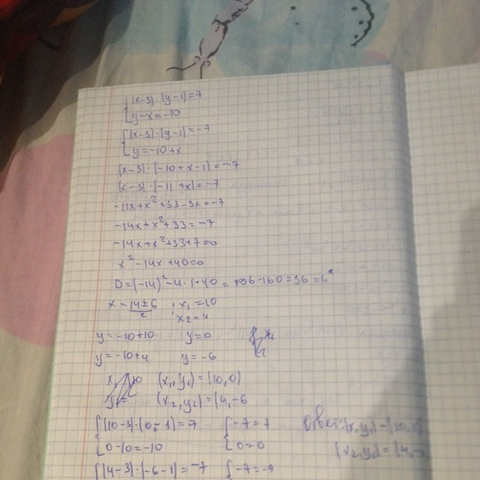 {(x-3)·(y-1)=7
{y-x=-10
{(x-3)·(y-1)=-7
{y=-10+x
(x-3)·(-10+x-1)=-7
(x-3)·(-11+x)=-7
-11x+x²+33-3x=-7
-14x+x²+33=-7
-14x+x²+33+7=0
x²-14x+40=0
D=(-14)²-4·1·40=196-160=36=6²
x=14±6/2 ; x₁=10
x₂=4
y=-10+10 y=0
y=-10+4 y=-6
(x₁,y₁)=(10,0)
(x₂,y₂)=(4,-6
{(10-3)·(0-1)=7 {-7=7
{0-10=-10 {0=0
{(4-3)·(-6-1)=-7 {-7=-7
Ответ: (x₁y₁)=(10,0)
(x₂,y₂)=(4,-